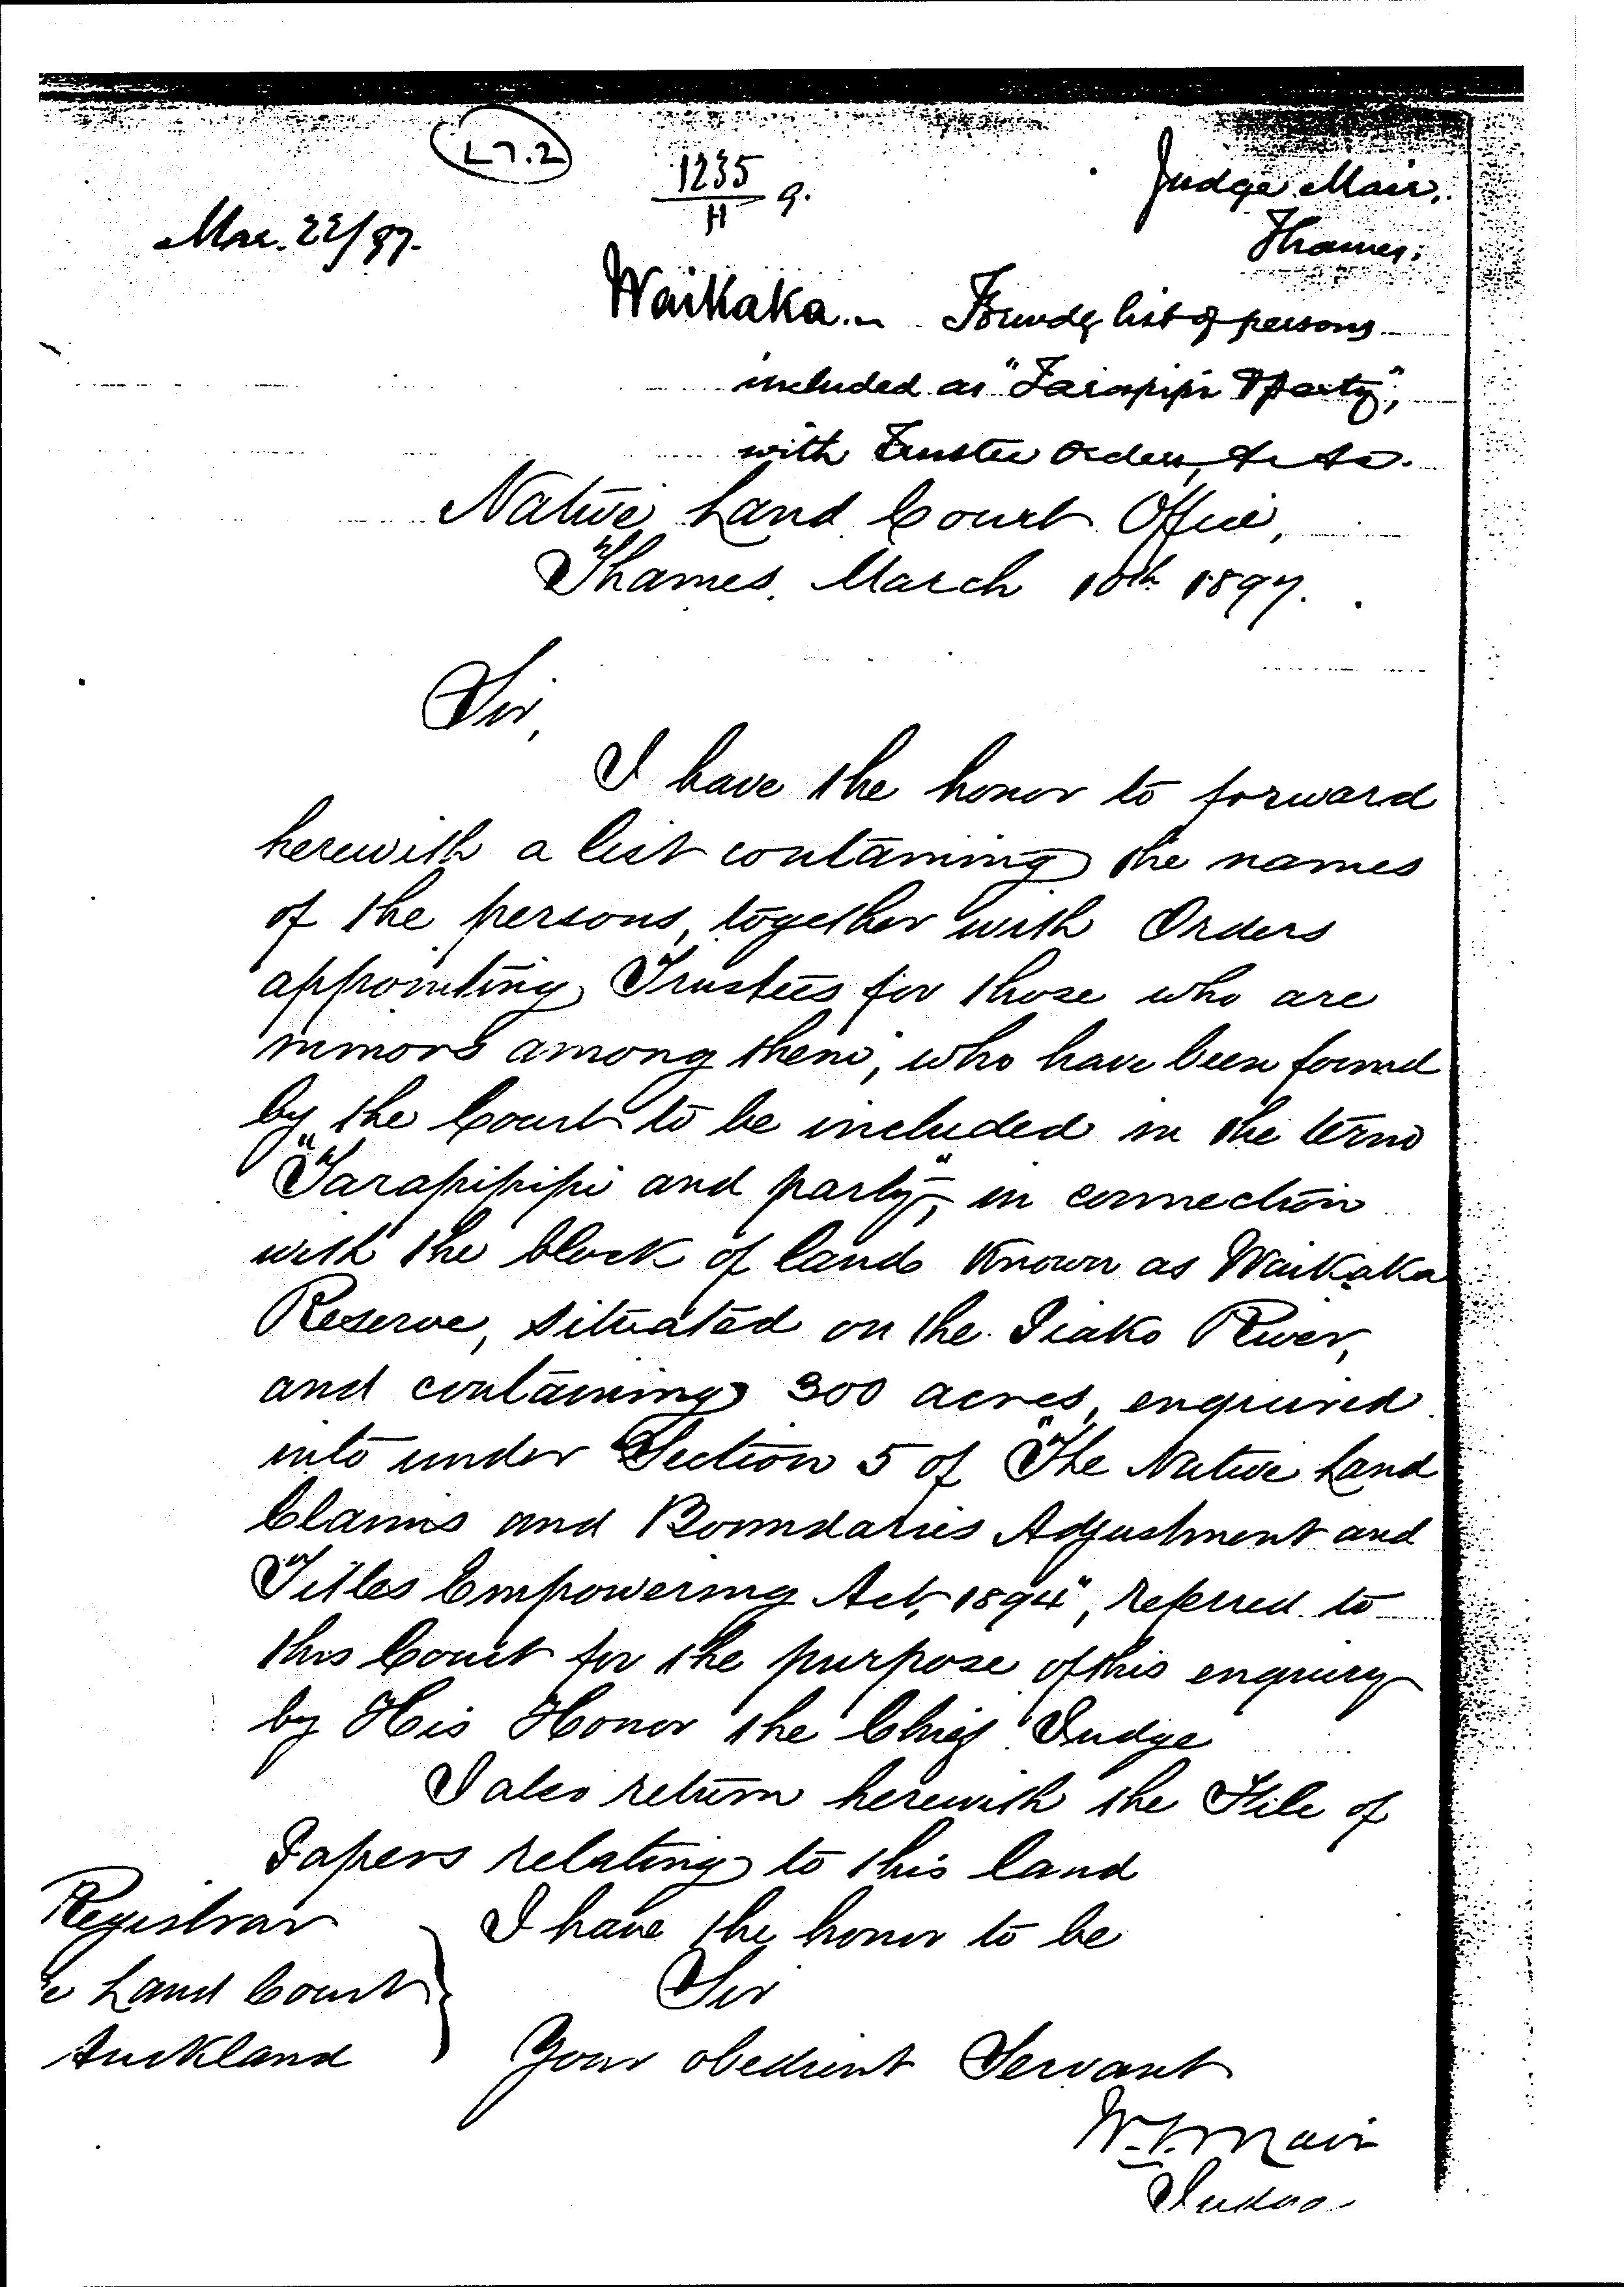 L7.2
1235
H 9.
Judge Mair,
Thames:
Mar. 22/97.
Waikaka. Forwdg list of persons
included as "Tarapipi & party",
with Trustee Orders, &c &c.
Native Land Court Office,
Thames. March 10th 1897.
Sir,
I have the honor to forward
herewith a list containing the names
of the persons, together with Orders
appointing Trustees for those who are
minors among them, who have been found
by the Court to be included in the term
"Tarapipipi and party", in connection
with the block of land known as Waikaka
Reserve, situated on the Piako River,
and containing 300 acres, enquired
into under Section 5 of "The Native Land
Claims and Boundaries Adjustment and
Titles Empowering Act, 1894", referred to
this Court for the purpose of this enquiry
by His Honor the Chief Judge
I also return herewith the File of
Papers relating to this land
Registrar
e Land Court
Auckland
I have the honor to be
Sir
Your obedient Servant
W.G. Mair
Judge